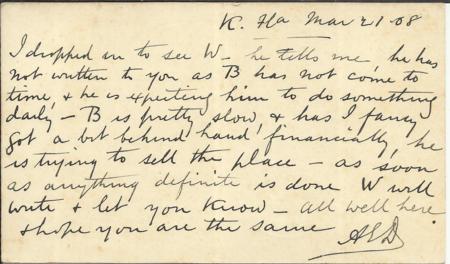 K. Fla Mar 21 08
I dropped in to see W - he tells me, he has
not written to you as B has not come to
time, & he is expecting him to do something
daily - B is pretty slow, & has I fancy
got a bit behind hand financially, he
is trying to sell the place - as soon
as anything definite is done W will
write & let you know - all well here
& hope you are the same
AED